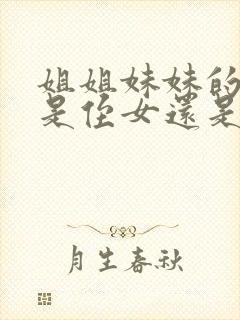 姐姐妹妹的
是侄女還是
月生春秋